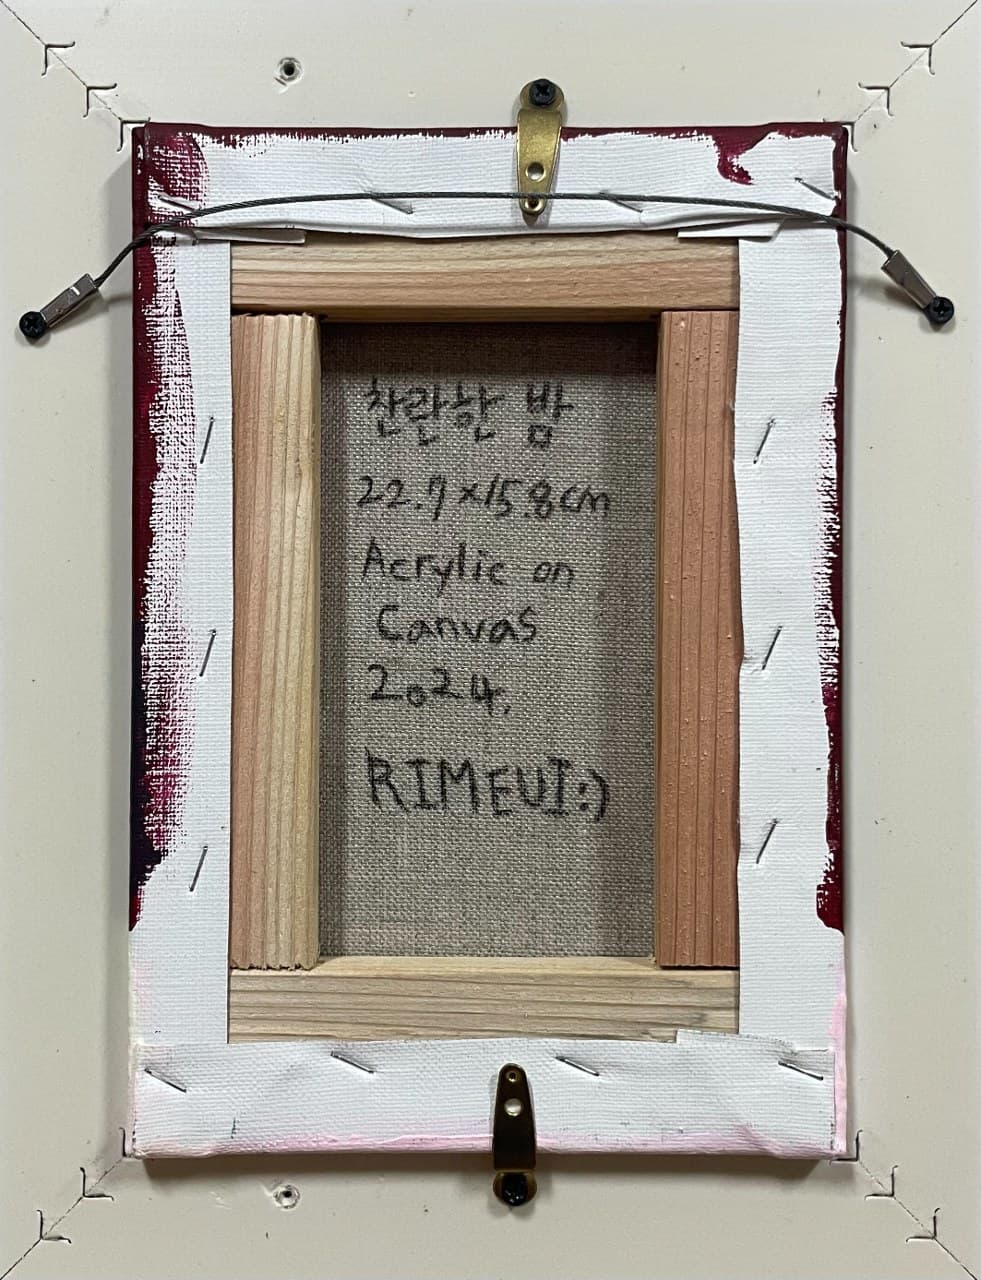 찬란한 밤
22.7×15.8cm
Acrylic on
Canvas
2024.
RIMEUI:)